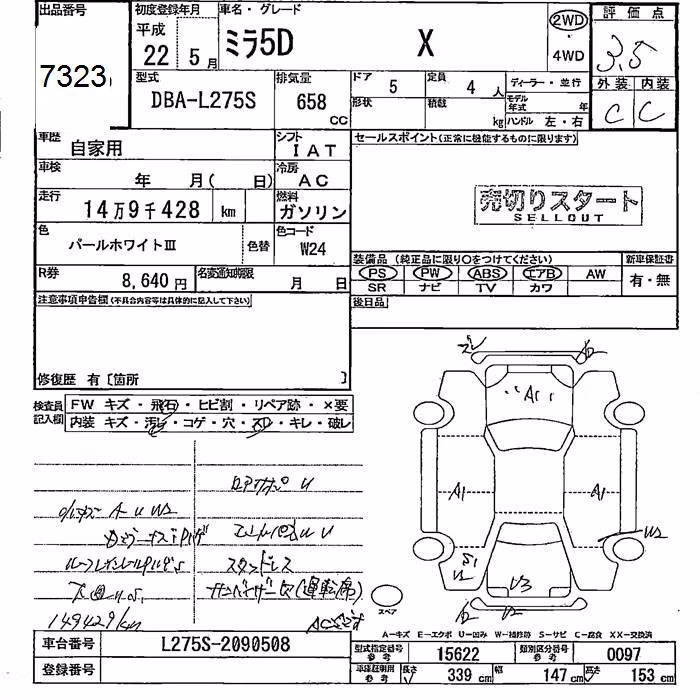 出品番号
7323
初度登録年月
平成
22 5月
車名・グレード
ミラ5D X
2WD
・
4WD
評価点
3.5
外装 内装
C C
型式
DBA-L275S
排気量
658
CC
ドア 5
定員 4人
ディーラー・並行
形状
積載 kg
モデル年式 年
ハンドル 左・右
車歴
自家用
シフト
IAT
セールスポイント(正常に機能するものに限ります)
車検
年 月( 日)
冷房
AC
走行
14万9千428 km
燃料
ガソリン
売切りスタート
SELLOUT
色
パールホワイトⅢ
色替
色コード
W24
装備品 (純正品に限り○をつけてください)
新車保証書
PS PW ABS エアB AW
有・無
SR ナビ TV カワ
R券
8,640円
名変通知期限
月 日
後日品
注意事項申告欄(不具合内容等は具体的に記入して下さい)
修復歴 有〔箇所 〕
検査員記入欄
FW キズ・飛石・ヒビ割・リペア跡・×要
内装 キズ・汚レ・コゲ・穴・スレ・キレ・破レ
A1
A1
A1
W2
S1
U3
スタッドレス
149429km
スペア
A-キズ E-エクボ U-凹み W-補修跡 S-サビ C-腐食 XX-交換済
車台番号
L275S-2090508
型式指定番号
参考
15622
類別区分番号
参考
0097
登録番号
車庫証明用
参考
長さ 339 cm
幅 147 cm
高さ 153 cm